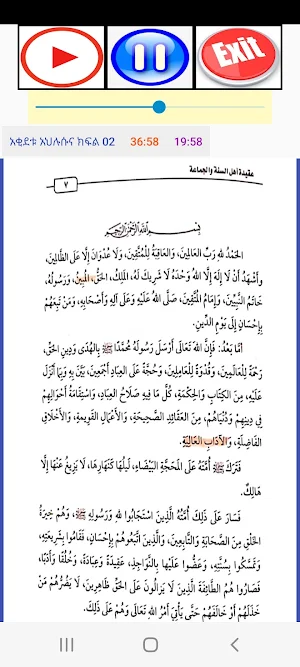 Exit
አቂደቱ አህሉሱና ክፍል 02 36:58 19:58
عقيدة أهل السنة والجماعة
٧
بِسْمِ اللَّهِ الرَّحْمَنِ الرَّحِيمِ
الحَمْدُ للهِ رَبِّ العَالَمِينَ، وَالعَاقِبَةُ لِلْمُتَّقِينَ، وَلَا عُدْوَانَ إِلَّا عَلَى الظَّالِمِينَ،
وَأَشْهَدُ أَنْ لَا إِلَهَ إِلَّا اللهُ وَحْدَهُ لَا شَرِيكَ لَهُ، المَلِكُ، الحَقُّ، المُبِينُ، وَرَسُولُهُ،
خَاتَمُ النَّبِيِّينَ، وَإِمَامُ المُتَّقِينَ، صَلَّى اللهُ عَلَيْهِ وَعَلَى آلِهِ وَأَصْحَابِهِ، وَمَنْ تَبِعَهُمْ
بِإِحْسَانٍ إِلَى يَوْمِ الدِّينِ.
أَمَّا بَعْدُ: فَإِنَّ اللهَ تَعَالَى أَرْسَلَ رَسُولَهُ مُحَمَّدًا ﷺ بِالهُدَى وَدِينِ الحَقِّ،
رَحْمَةً لِلْعَالَمِينَ، وَقُدْوَةً لِلْعَامِلِينَ، وَحُجَّةً عَلَى العِبَادِ أَجْمَعِينَ، بَيَّنَ بِهِ وَبِمَا أَنْزَلَ
عَلَيْهِ، مِنَ الكِتَابِ وَالحِكْمَةِ، كُلَّ مَا فِيهِ صَلَاحُ العِبَادِ، وَاسْتِقَامَةُ أَحْوَالِهِمْ
فِي دِينِهِمْ وَدُنْيَاهُمْ، مِنَ العَقَائِدِ الصَّحِيحَةِ، وَالأَعْمَالِ القَوِيمَةِ، وَالأَخْلَاقِ
الفَاضِلَةِ، وَالآدَابِ العَالِيَةِ.
فَتَرَكَ ﷺ أُمَّتَهُ عَلَى المَحَجَّةِ البَيْضَاءِ، لَيْلُهَا كَنَهَارِهَا، لَا يَزِيغُ عَنْهَا إِلَّا
هَالِكٌ.
فَسَارَ عَلَى ذَلِكَ أُمَّتُهُ الَّذِينَ اسْتَجَابُوا للهِ وَرَسُولِهِ ﷺ، وَهُمْ خِيَرَةُ
الخَلْقِ مِنَ الصَّحَابَةِ وَالتَّابِعِينَ، وَالَّذِينَ اتَّبَعُوهُمْ بِإِحْسَانٍ، فَقَامُوا بِشَرِيعَتِهِ،
وَتَمَسَّكُوا بِسُنَّتِهِ، وَعَضُّوا عَلَيْهَا بِالنَّوَاجِذِ، عَقِيدَةً وَعِبَادَةً، وَخُلُقًا وَأَدَبًا،
فَصَارُوا هُمُ الطَّائِفَةَ الَّذِينَ لَا يَزَالُونَ عَلَى الحَقِّ ظَاهِرِينَ، لَا يَضُرُّهُمْ مَنْ
خَذَلَهُمْ أَوْ خَالَفَهُمْ حَتَّى يَأْتِيَ أَمْرُ اللهِ تَعَالَى وَهُمْ عَلَى ذَلِكَ.